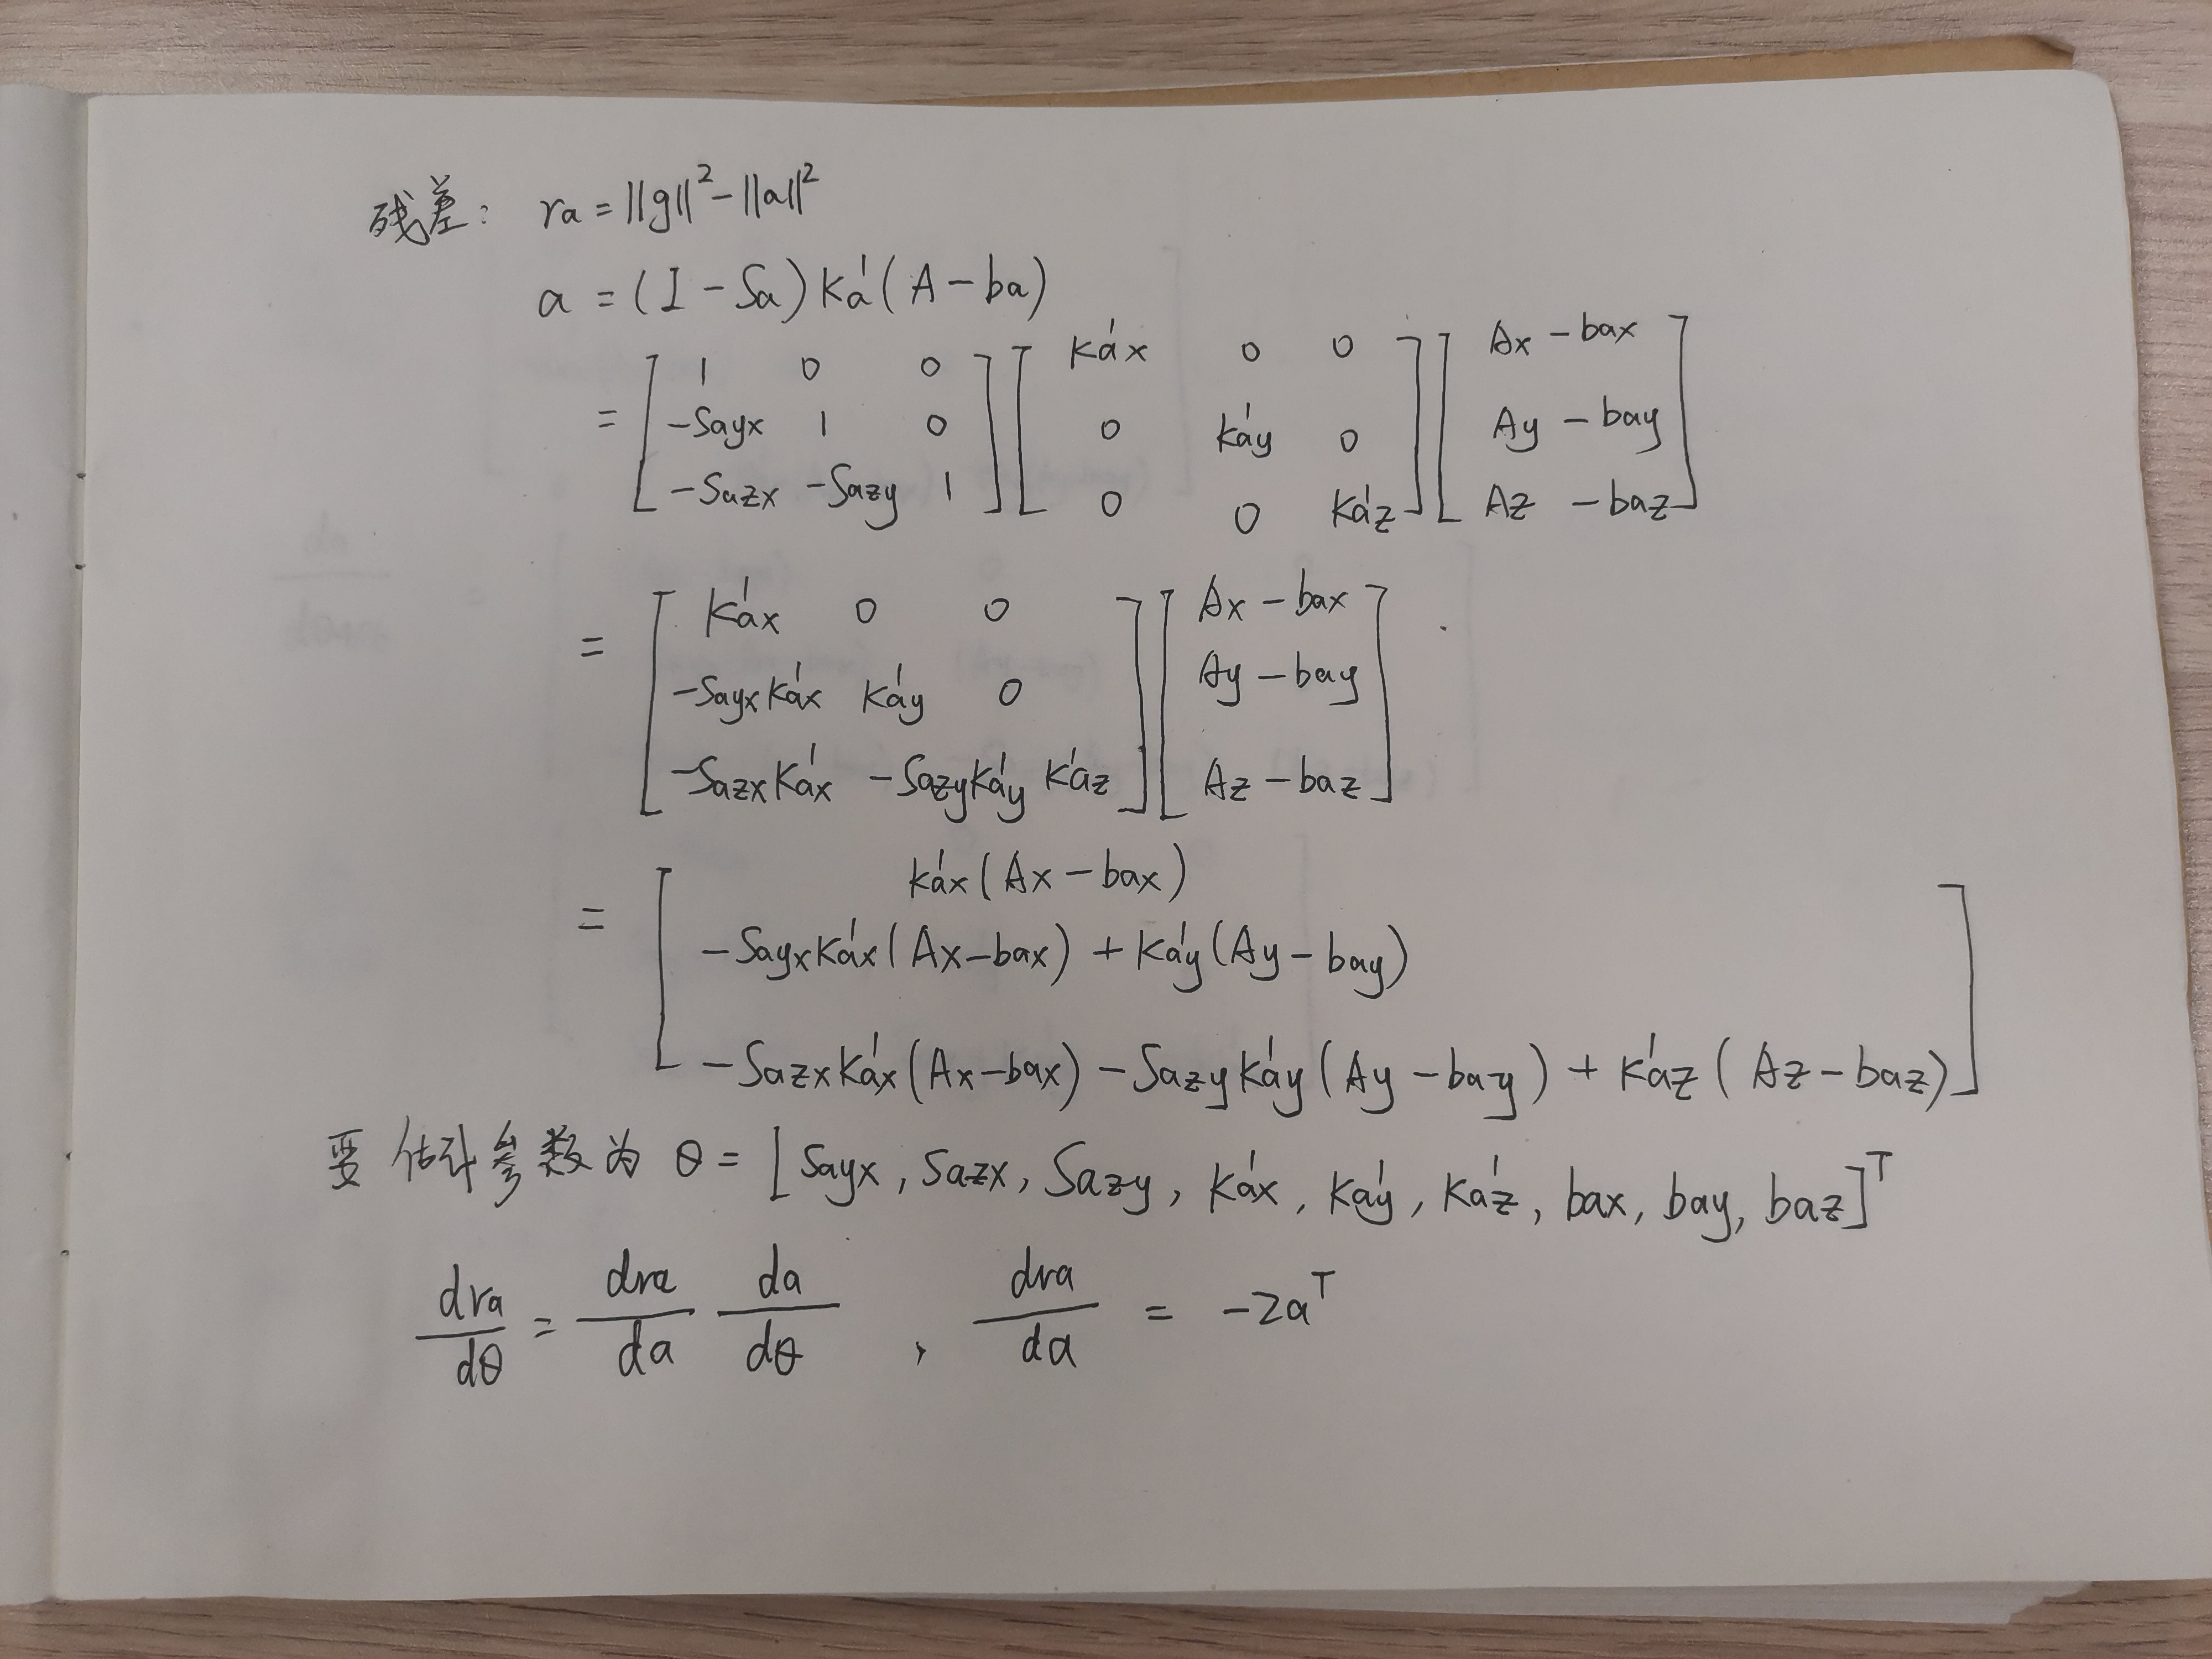 残差: ra = ||g||² - ||a||²
a = (I - Sa) Ka' (A - ba)
= [ 1 0 0 ; -Sayx 1 0 ; -Sazx -Sazy 1 ] [ Ka'x 0 0 ; 0 Ka'y 0 ; 0 0 Ka'z ] [ Ax - bax ; Ay - bay ; Az - baz ]
= [ Ka'x 0 0 ; -SayxKa'x Ka'y 0 ; -SazxKa'x -SazyKa'y Ka'z ] [ Ax - bax ; Ay - bay ; Az - baz ]
= [ Ka'x (Ax - bax) ; -SayxKa'x (Ax - bax) + Ka'y (Ay - bay) ; -SazxKa'x (Ax - bax) - SazyKa'y (Ay - bay) + Ka'z (Az - baz) ]
要估计参数为 θ = [ Sayx, Sazx, Sazy, Ka'x, Ka'y, Ka'z, bax, bay, baz ]ᵀ
dra/dθ = dra/da da/dθ , dra/da = -2aᵀ